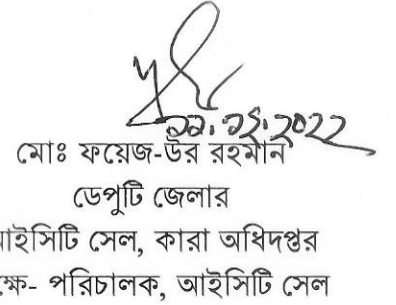 মোঃ ফয়েজ-উর রহমান
ডেপুটি জেলার
আইসিটি সেল, কারা অধিদপ্তর
পরিচালক, আইসিটি সেল